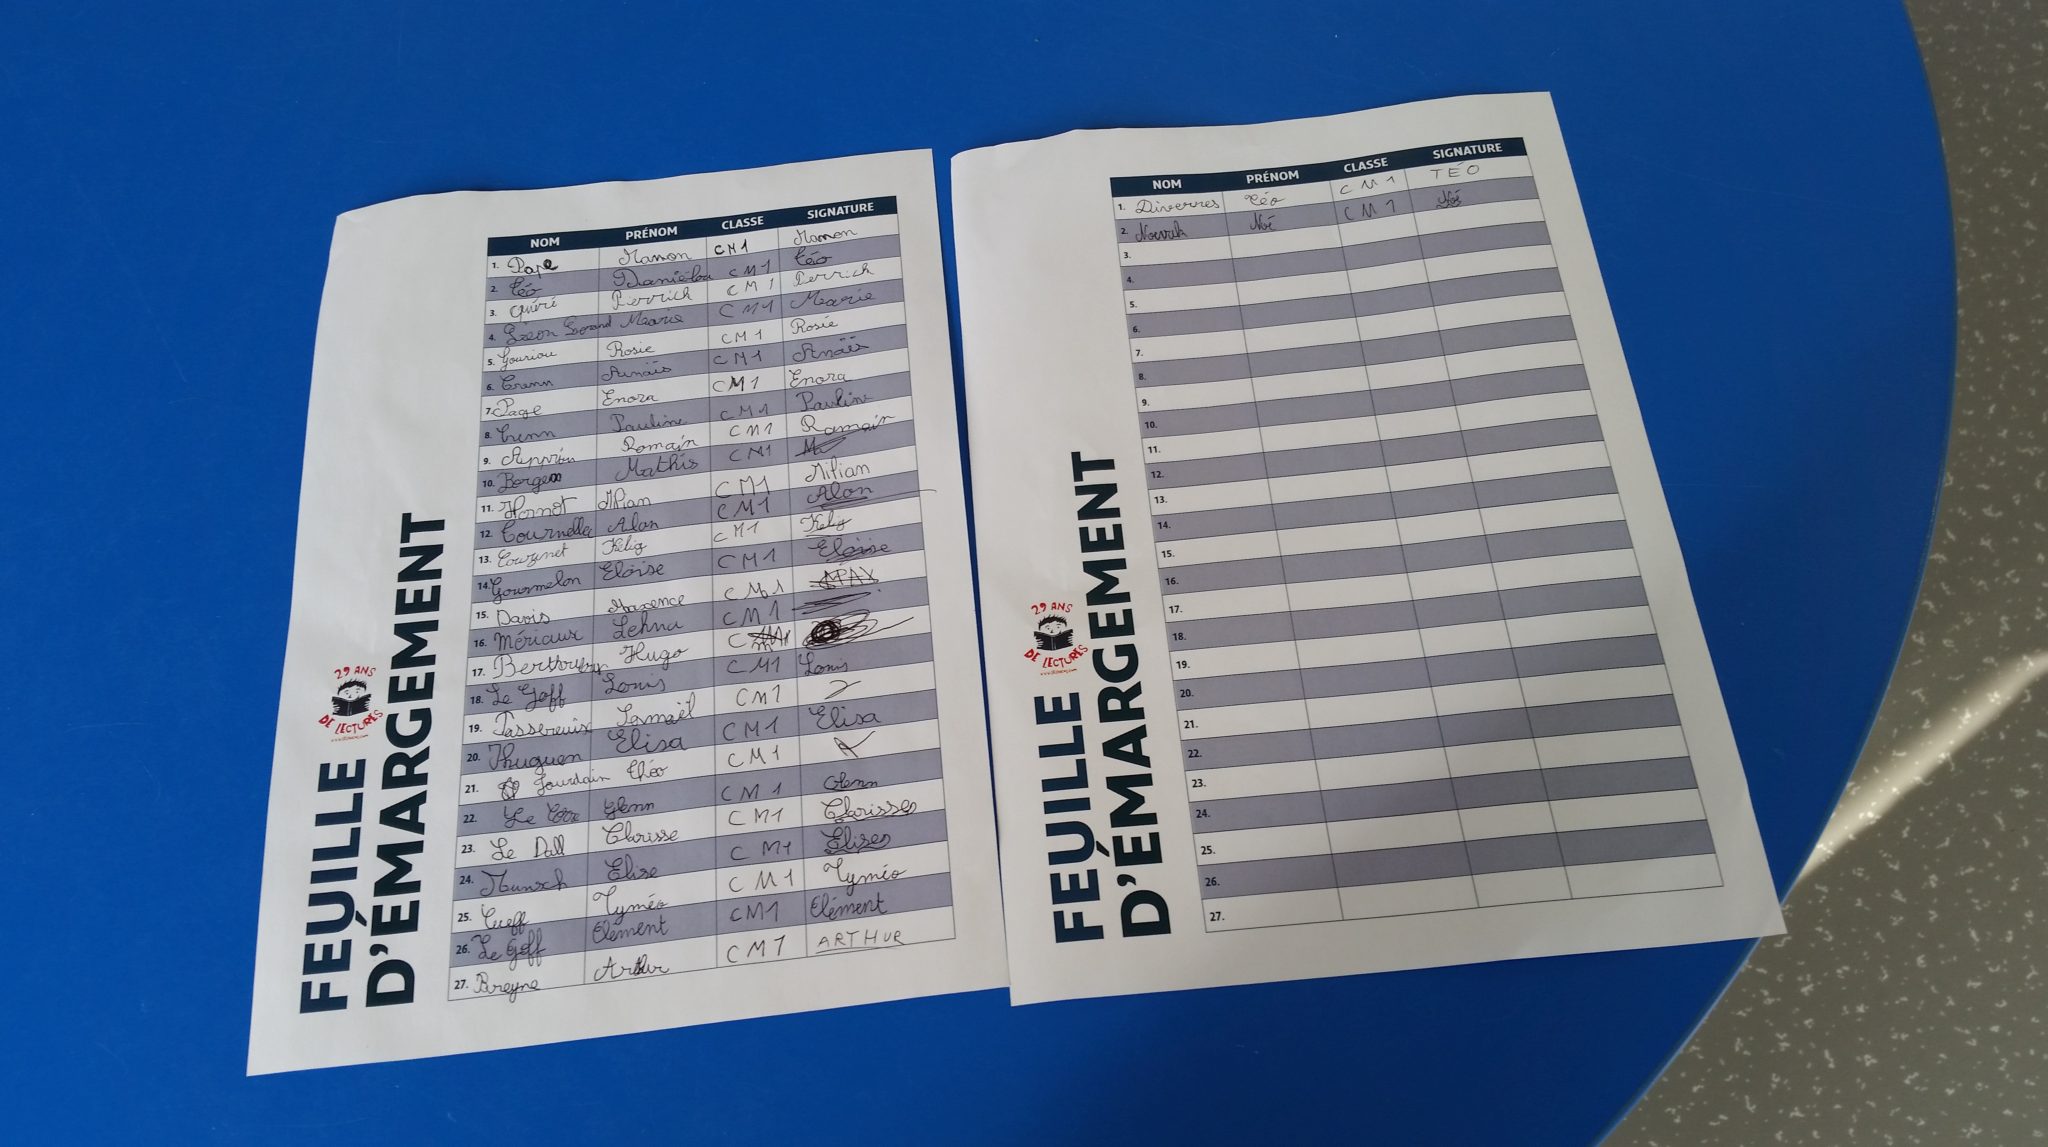 FEUILLE
D'ÉMARGEMENT
29 ANS
DE LECTURES
NOM PRÉNOM CLASSE SIGNATURE
1. Pape Manon CM1 Manon
2. Téo Daniélou CM1 Téo
3. Quéré Perrich CM1 Perrich
4. Marie CM1 Marie
5. Gouriou Rosie CM1 Rosie
6. Trenn Anaïs CM1 Anaïs
7. Page Enora CM1 Enora
8. Trenn Pauline CM1 Pauline
9. Romain CM1 Romain
10. Mathis CM1
11. Hornot Milian CM1 Milian
12. Tournellec Alan CM1 Alan
13. Couzinet Kélig CM1 Kélig
14. Gourmelon Eloïse CM1 Eloïse
15. Davis Maxence CM1 MAX
16. Mériaux Lehna CM1
17. Hugo CM1
18. Le Goff Louis CM1 Louis
19. Ismaël CM1
20. Elisa CM1 Elisa
21. Jourdain Théo CM1
22. Le Glenn CM1 Glenn
23. Le Dall Clarisse CM1 Clarisses
24. Munsch Elise CM1 Elises
25. Cueff Tyméo CM1 Tyméo
26. Le Goff Clément CM1 Clément
27. Breyne Arthur CM1 ARTHUR
FEUILLE
D'ÉMARGEMENT
29 ANS
DE LECTURES
NOM PRÉNOM CLASSE SIGNATURE
1. Diverres Téo CM1 TÉO
2. Noé CM1 Noé
3.
4.
5.
6.
7.
8.
9.
10.
11.
12.
13.
14.
15.
16.
17.
18.
19.
20.
21.
22.
23.
24.
25.
26.
27.